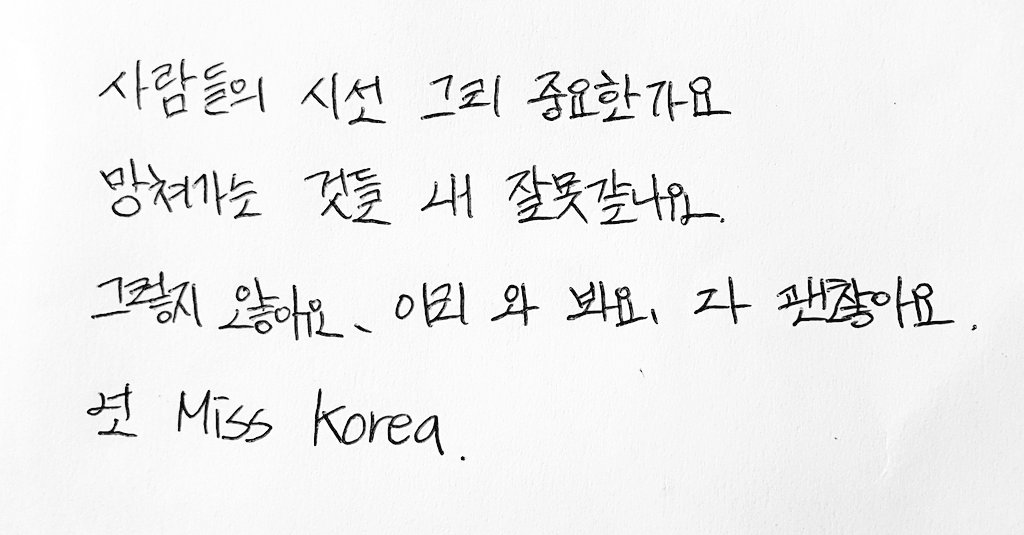 사람들의 시선 그리 중요한가요
망쳐가는 것들 내 잘못같나요.
그렇지 않아요, 이리 와 봐요, 다 괜찮아요.
넌 Miss Korea.